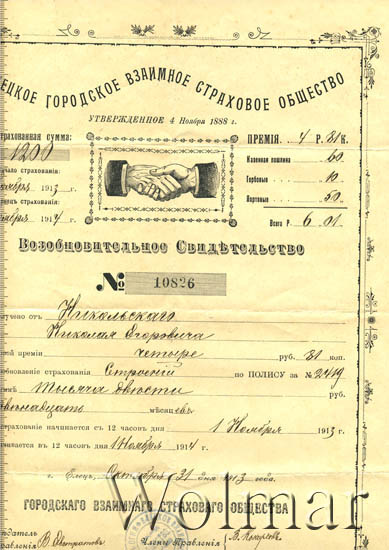 ЕЦКОЕ ГОРОДСКОЕ ВЗАИМНОЕ СТРАХОВОЕ ОБЩЕСТВО
УТВЕРЖДЕННОЕ 4 Ноября 1888 г.
трахованная сумма:
1200
ачало страхованія:
оября 1913 г.
страхованія:
оября 1914 г.
ПРЕМІЯ 4 Р. 81 К.
Казенная пошлина 60
Гербовые 10
Портовые 50
Всего Р 6 01
Возобновительное Свидѣтельство
№ 10826
лучено отъ Никольскаго
Николая Егоровича
ей преміи четыре руб. 81 коп.
обновленіе страхованія Строеній по ПОЛИСУ за № 2419
Тысяча двѣсти
мѣсяцевъ
страхованіе начинается съ 12 часовъ дня 1 Ноября 1913 г.
чивается въ 12 часовъ дня 1 Ноября 1914 г.
г. Елецъ, Октября 31 дня 1913 года.
ГОРОДСКАГО ВЗАИМНАГО СТРАХОВАГО ОБЩЕСТВА
Wolmar
едатель
Члены Правленія